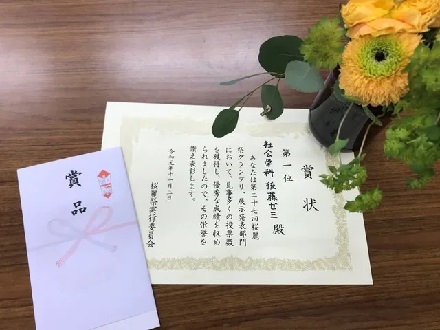 賞状
第一位
社会学科 後藤ゼミ 殿
あなたは第二十七回桜麗
祭グランプリ、展示発表部門
において、見事多くの投票数
を獲得し、優秀な成績を収め
られましたので、その栄誉を
讃え表彰します。
令和元年十一月二日
桜麗祭実行委員会
賞品